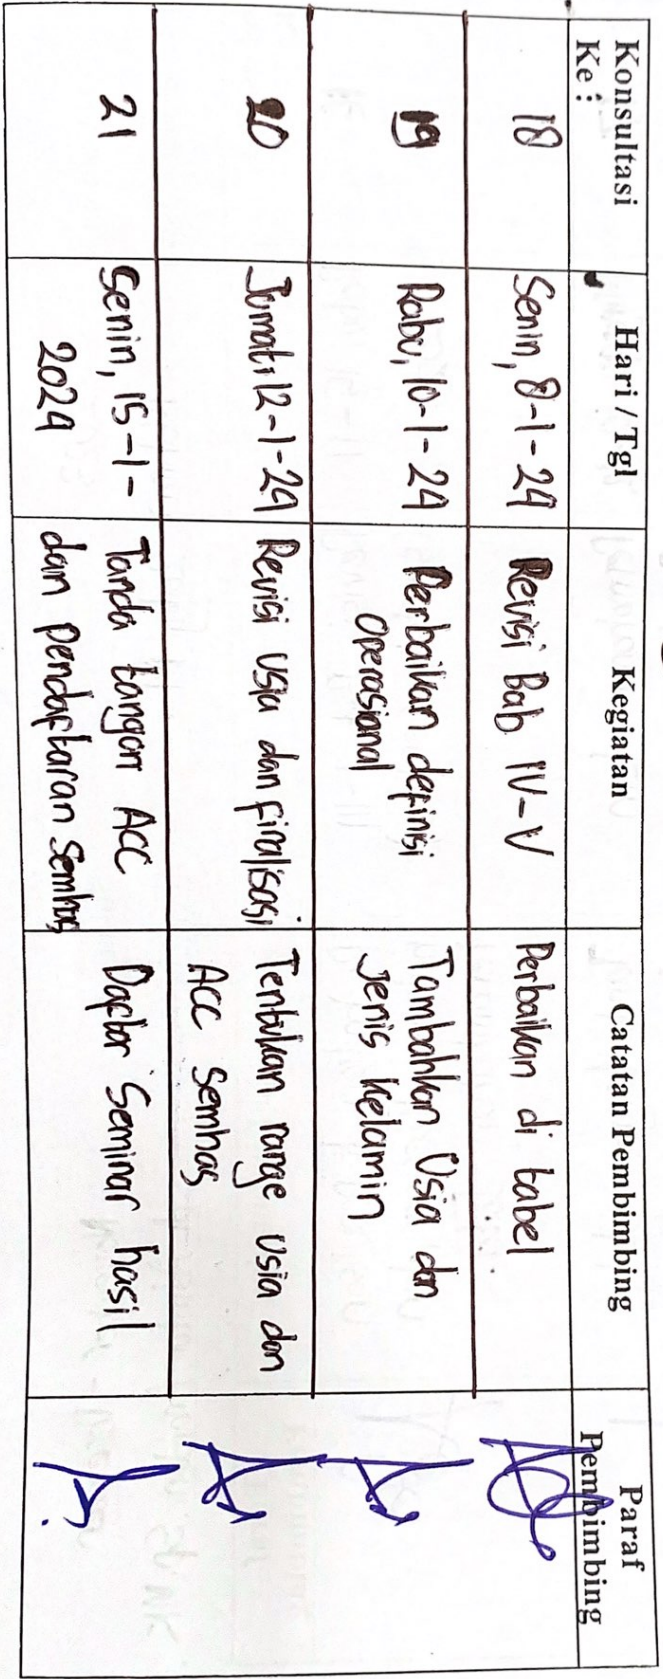 Konsultasi
Ke :
Hari / Tgl
Kegiatan
Catatan Pembimbing
Paraf
Pembimbing
18
Senin, 8-1-24
Revisi Bab IV-V
Perbaikan di tabel
19
Rabu, 10-1-24
Perbaikan definisi
Operasional
Tambahkan Usia dan
Jenis kelamin
20
Jumat, 12-1-24
Revisi Usia dan finalisasi
Tentukan range usia dan
ACC semhas
21
Senin, 15-1-
2024
Tanda tangan ACC
dan pendaftaran Semhas
Daftar Seminar hasil